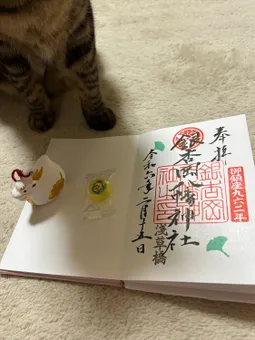 奉拝
御鎮座九六二年
銀杏岡八幡神社
浅草橋
令和六年二月十五日
銀杏岡